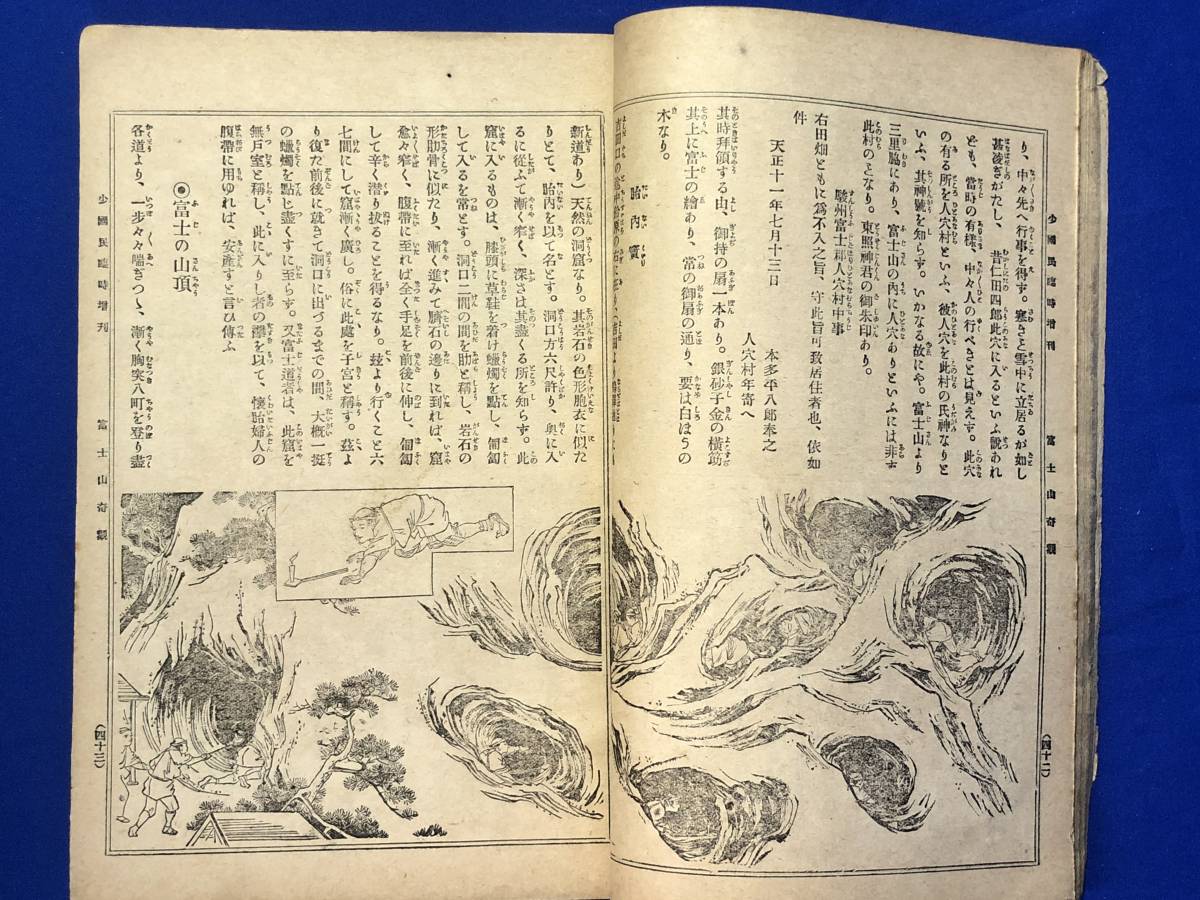 少國民臨時増刊
富士山奇觀
り、中々先へ行事を得ず。寒さ雪中に立居るが如し
甚凌ぎがたし、昔仁田四郎此穴に入るといふ説あれ
ども、當時の有樣、中々人の行べきとは見えず。此穴
の有る所を人穴村といふ、彼人穴を此村の氏神なりと
いふ、其神號を知らず。いかなる故にや。富士山より
三里脇にあり、富士山の內に人穴ありといふには非ず
此村のことなり。東照神君の御朱印あり。
駿州富士郡人穴村中事
右田畑ともに爲不入之旨、守此旨可致居住者也、依如
件
天正十一年七月十三日
本多平八郎奉之
人穴村年寄へ
其時拜領する由、御持の扇一本あり。銀砂子金の横筋
其上に富士の繪あり、常の御扇の通り、要は白ほうの
木なり。
胎內竇
吉田口の
(四十二)
新道あり)天然の洞窟なり。其岩石の色形胞衣に似た
りとて、胎內を以て名とす。洞口方六尺許り、奥に入
るに從ふて漸く窄く、深さは其盡くる所を知らず。此
窟に入るものは、膝頭に草鞋を着け蠟燭を點し、匍匐
して入るを常とす。洞口二間の間を肋と稱し、岩石の
形肋骨に似たり、漸く進みて臍石の邊りに到れば、窟
愈々窄く、腹帶に至れば全く手足を前後に伸し、匍匐
して辛く潜り拔ることを得るなり。玆より行くこと六
七間にして窟漸く廣し。俗に此處を子宮と稱す。玆よ
り復た前後に就き洞口に出づるまでの間、大概一挺
の蠟燭を點じ盡くすに至らず。又富士道者は、此窟を
無戶室と稱し、此に入りし者の襷を以て、懷胎婦人の
腹帶に用ゆれば、安產すと言ひ傳ふ
◉富士の山頂
各道より、一步々々喘ぎつゝ、漸く胸突八町を登り盡
少國民臨時増刊
富士山奇觀
(四十三)